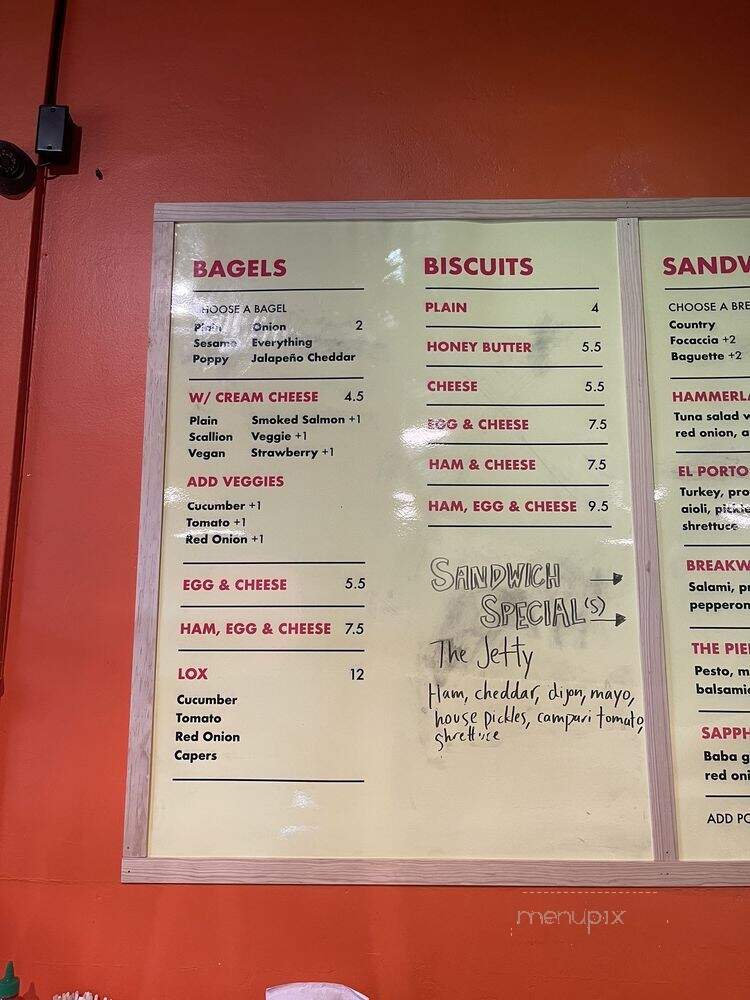 BAGELS
CHOOSE A BAGEL
Plain Onion 2
Sesame Everything
Poppy Jalapeño Cheddar
W/ CREAM CHEESE 4.5
Plain Smoked Salmon +1
Scallion Veggie +1
Vegan Strawberry +1
ADD VEGGIES
Cucumber +1
Tomato +1
Red Onion +1
EGG & CHEESE 5.5
HAM, EGG & CHEESE 7.5
LOX 12
Cucumber
Tomato
Red Onion
Capers
BISCUITS
PLAIN 4
HONEY BUTTER 5.5
CHEESE 5.5
EGG & CHEESE 7.5
HAM & CHEESE 7.5
HAM, EGG & CHEESE 9.5
SANDWICH
SPECIAL(S)
The Jetty
Ham, cheddar, dijon, mayo,
house pickles, campari tomato,
shrettuce
SANDW
CHOOSE A BRE
Country
Focaccia +2
Baguette +2
HAMMERLA
Tuna salad w
red onion, a
EL PORTO
Turkey, pro
aioli, pickle
shrettuce
BREAKW
Salami, pr
pepperon
THE PIE
Pesto, m
balsamic
SAPPH
Baba g
red oni
ADD PO
menupix